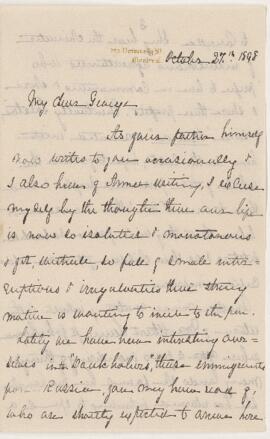 October 27th 1898
My dear George
As your father himself
now writes to you occasionally &
I also hear of Annee writing, I excuse
myself by the thought that our life
is now so isolated & monotonous
& yet, withal, so full of small inter-
ruptions & irregularities that strong
motive is wanting to incite to the pen.
Lately we have been interesting our-
selves in the "Doukhobors", those immigrants
from Russia you may have read of,
who are shortly expected to arrive here